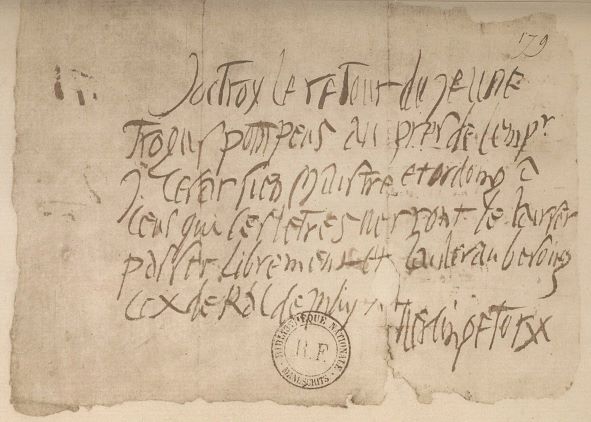 179
Joctroy le retour du jeune
Trogus pompeus au pres de lempr
J. Cesar sien maistre et ordonn a
ceus qui ces letres verront le laisser
passer librement et laider au besoing
ce x de Kal de
BIBLIOTHEQUE NATIONALE
R.F.
MANUSCRITS